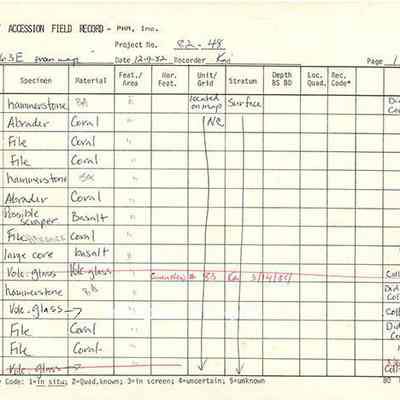 ACCESSION FIELD RECORD - PHR, Inc.
Project No. 82-48
63E Date 12-9-82 Recorder Page 1
Specimen Material Feat./Area Hor. Feat. Unit/Grid Stratum Depth BS BD Loc. Quad. Rec. Code*
hammerstone BA " located on map Surface Did
Abrader Coral " NC
File Coral "
File Coral "
hammerstone BA "
Abrader Coral "
Possible scraper Basalt "
File Coral "
large core basalt "
Volc. glass Volc. glass " Coll
hammerstone BA " Did
Volc. glass → " Coll
File Coral " Did
File Coral "
Volc. glass → " Coll
Code: 1=in situ; 2=Quad.known; 3=in screen; 4=uncertain; 5=unknown BD